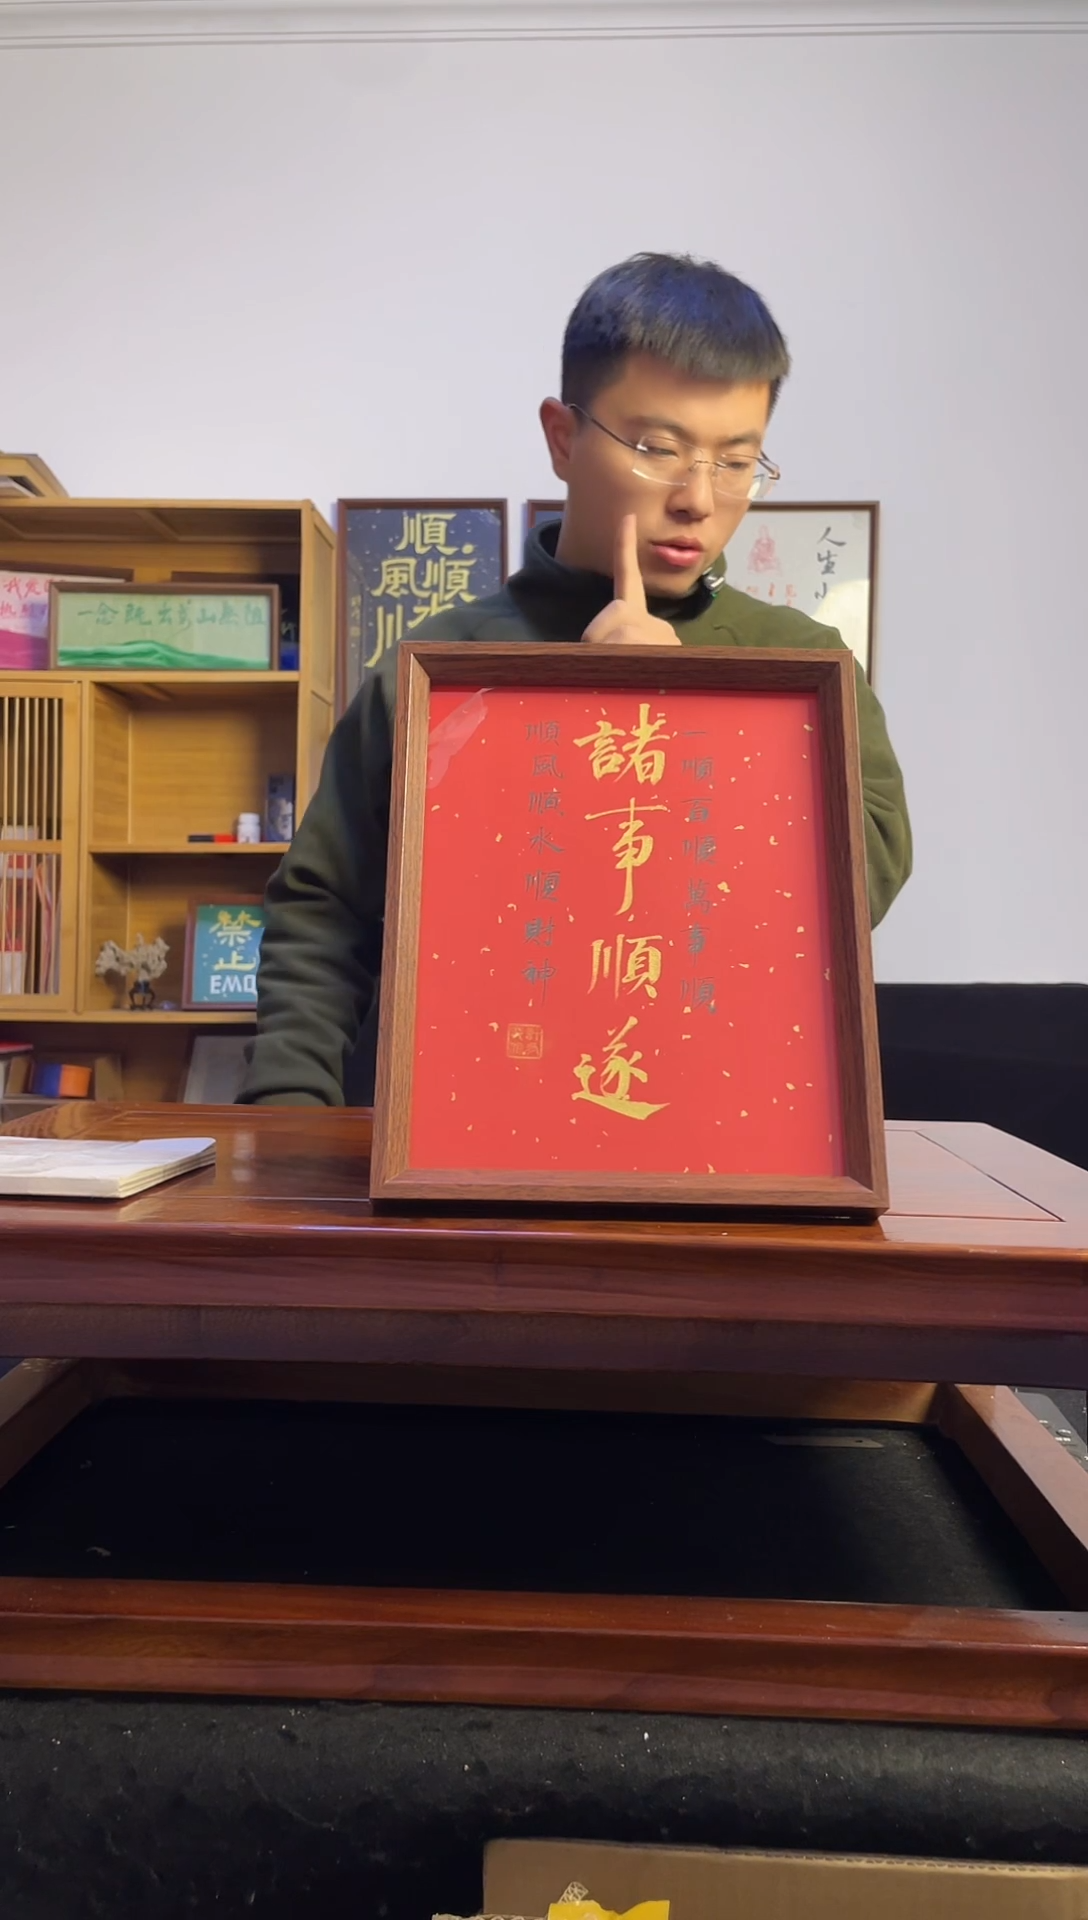 諸事順遂
一順百順萬事順
順風順水順財神
順順
風水
川
人生小
我爱
热烈
一念既出萬山無阻
禁止
EMO